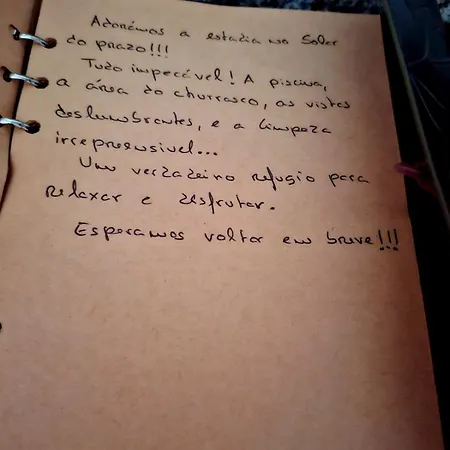 Adorámos a estadia no Solar
do prazo!!!
Tudo impecável! A piscina,
a área do churrasco, as vistas
deslumbrantes, e a limpeza
irrepreensivel...
Um verdadeiro refugio para
relaxar e desfrutar.
Esperamos voltar em breve!!!